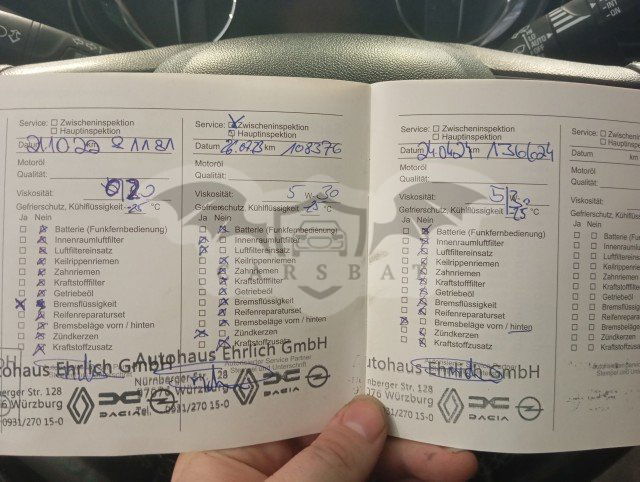 Service: Zwischeninspektion
Hauptinspektion
Datum 21.10.22 km 81181
Motoröl
Qualität:
Viskosität: 0 20
Gefrierschutz, Kühlflüssigkeit -25 °C
Ja Nein
Batterie (Funkfernbedienung)
Innenraumluftfilter
Luftfiltereinsatz
Keilrippenriemen
Zahnriemen
Kraftstofffilter
Getriebeöl
Bremsflüssigkeit
Reifenreparaturset
Bremsbeläge vorn / hinten
Zündkerzen
Kraftstoffzusatz
tohaus Ehrlich GmbH
nberger Str. 128
Würzburg
0931/270 15-0
DACIA
Service: Zwischeninspektion
Hauptinspektion
Datum 26.07.23 km 108376
Motoröl
Qualität:
Viskosität: 5 W 30
Gefrierschutz, Kühlflüssigkeit -25 °C
Ja Nein
Batterie (Funkfernbedienung)
Innenraumluftfilter
Luftfiltereinsatz
Keilrippenriemen
Zahnriemen
Kraftstofffilter
Getriebeöl
Bremsflüssigkeit
Reifenreparaturset
Bremsbeläge vorn / hinten
Zündkerzen
Kraftstoffzusatz
Autohaus Ehrlich GmbH
Nürnberger Str. 128
97076 Würzburg
Tel. 0931/270 15-0
DACIA
Service: Zwischeninspektion
Hauptinspektion
Datum 24.04.24 km 136624
Motoröl
Qualität:
Viskosität:
Gefrierschutz, Kühlflüssigkeit -25 °C
Ja Nein
Batterie (Funkfernbedienung)
Innenraumluftfilter
Luftfiltereinsatz
Keilrippenriemen
Zahnriemen
Kraftstofffilter
Getriebeöl
Bremsflüssigkeit
Reifenreparaturset
Bremsbeläge vorn / hinten
Zündkerzen
Kraftstoffzusatz
utohaus Ehrlich GmbH
nberger Str. 128
076 Würzburg
0931/270 15-0
DACIA
Service:
Datum
Motoröl
Qualität:
Viskosität:
Gefrierschutz, Kühlf
Ja Nein
Batterie (Fu
Innenrauml
Luftfilterein
Keilrippenri
Zahnriemen
Kraftstofffilt
Getriebeöl
Bremsflüssi
Reifenrepar
Bremsbeläg
Zündkerzen
Kraftstoffzu
ARSBAT
INT
ON